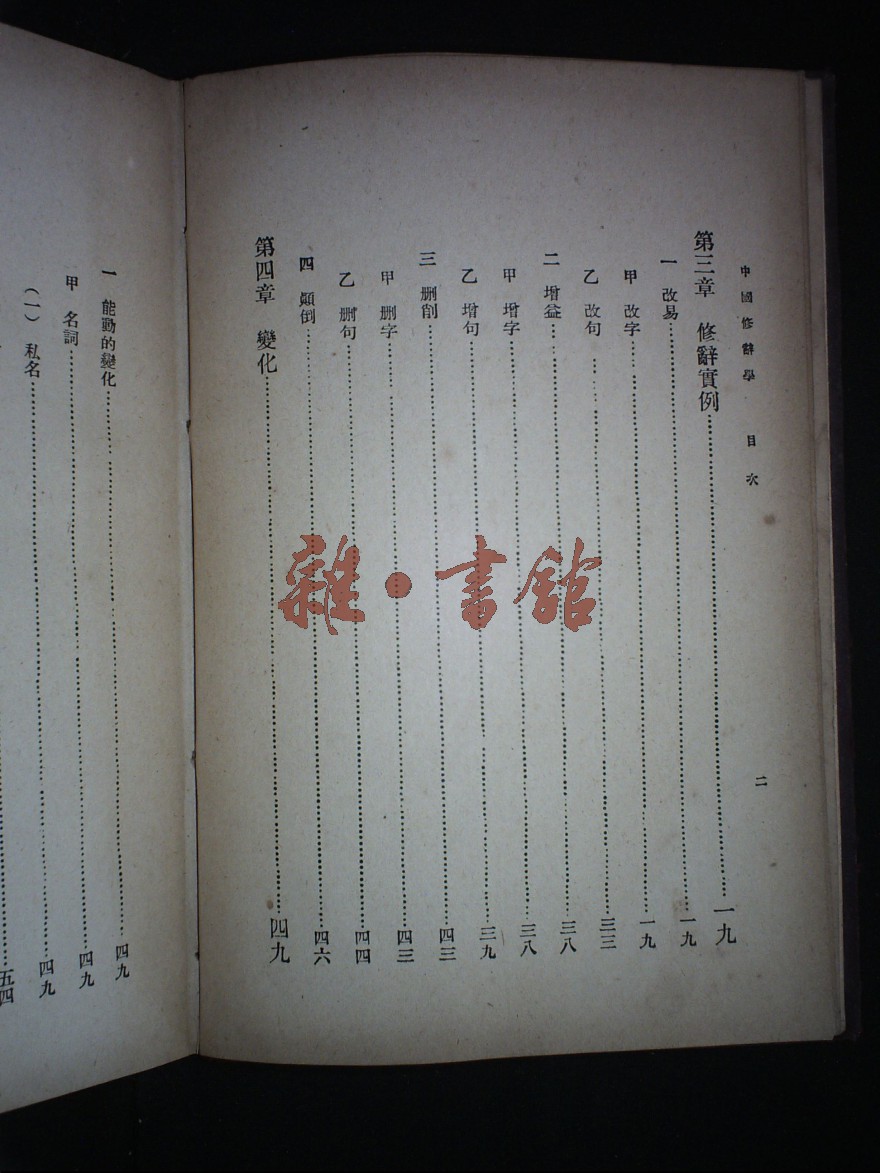 中國修辭學　目次　二
第三章　修辭實例……一九
一　改易……一九
甲　改字……一九
乙　改句……三三
二　增益……三八
甲　增字……三八
乙　增句……三九
三　删削……四三
甲　删字……四三
乙　删句……四四
四　顚倒……四六
第四章　變化……四九
一　能動的變化……四九
甲　名詞……四九
（一）　私名……四九
五四
雜·書館